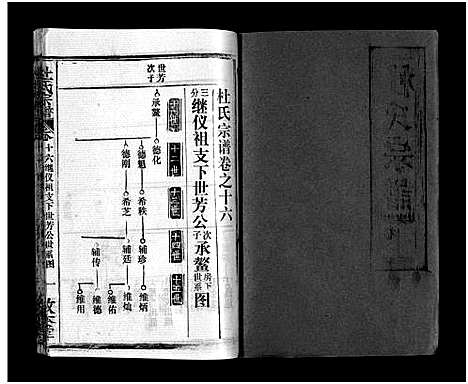 杜氏宗谱卷之十六
三分继仪祖支下世芳公次子承鳌房下世系图
十一世
十二世
十三世
十四世
十五世
世芳次子
承鳌
德化
德魁
德刚
希秩
希芝
辅珍
辅廷
辅传
维炳
维灿
维佑
维德
维用
杜氏宗谱
卷十六继仪祖支下世芳公世系图
一